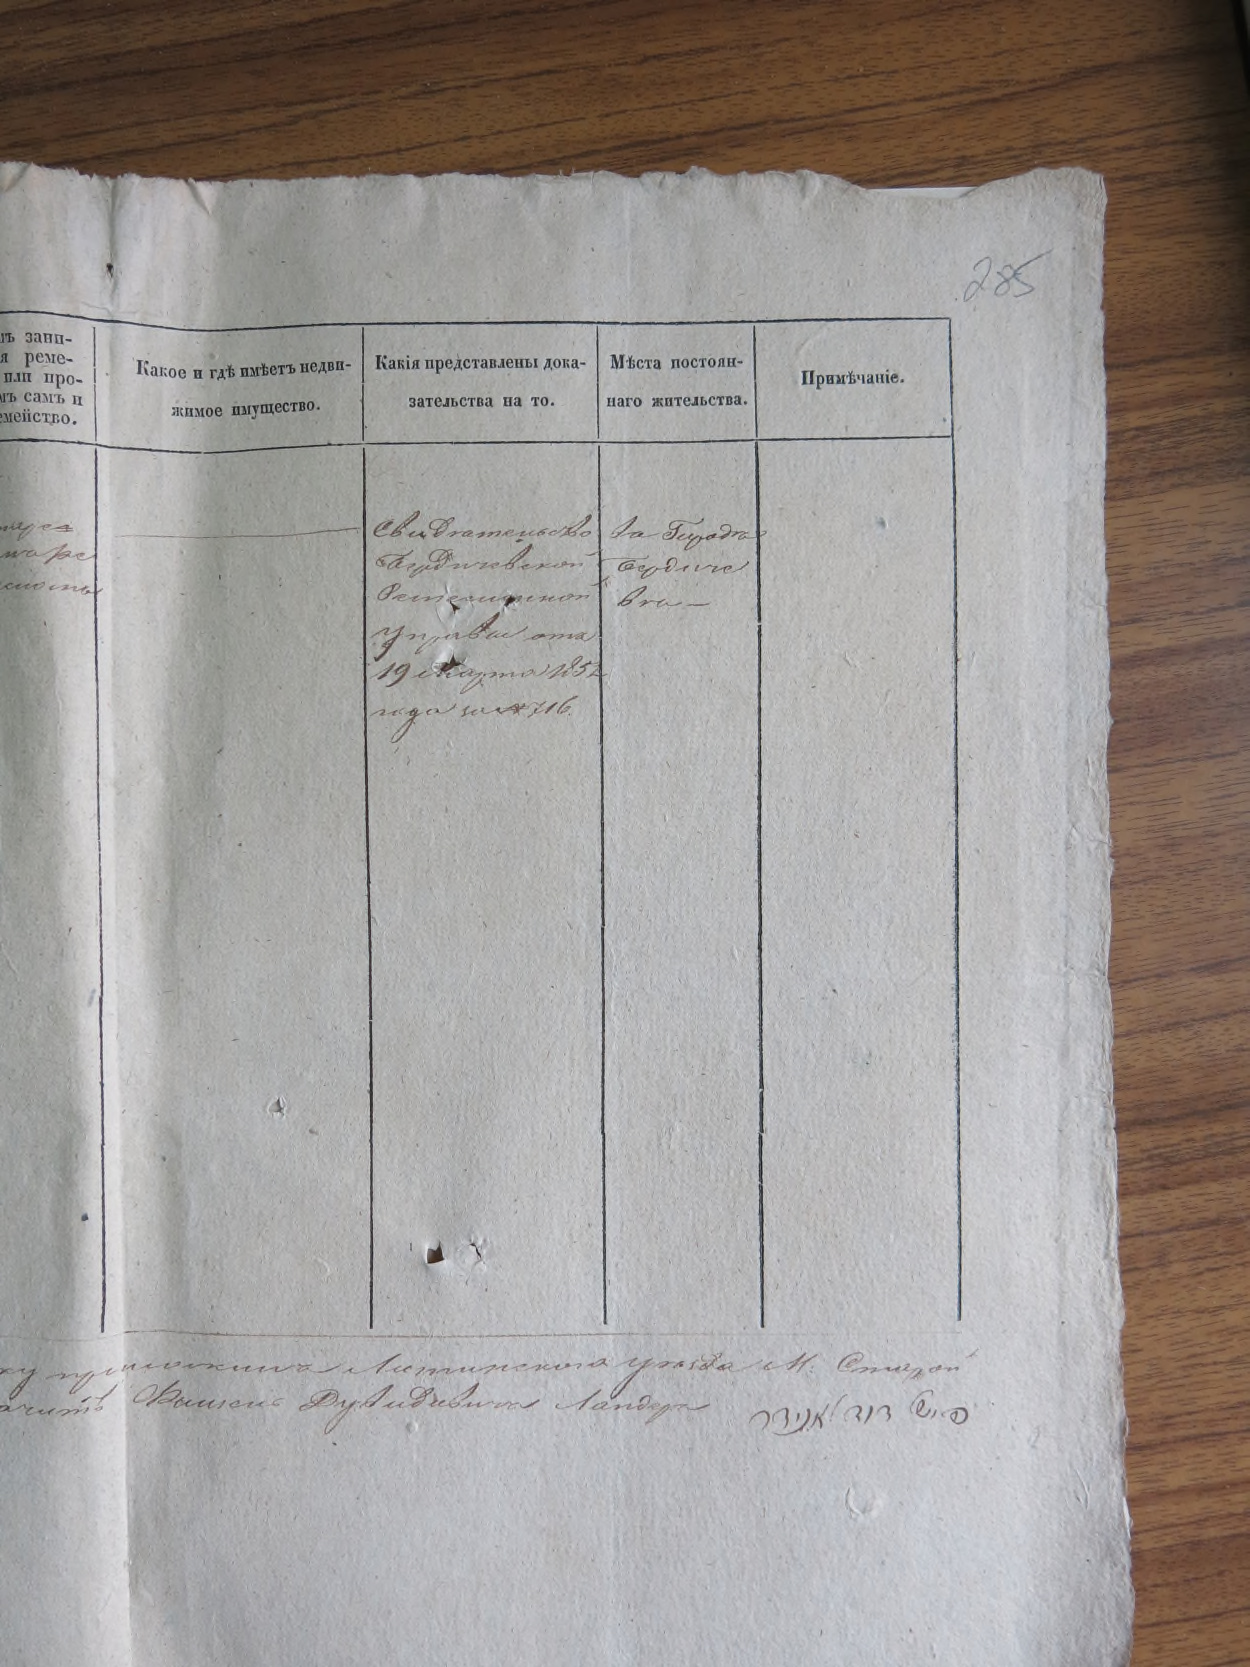 285
зани-
я реме-
или про-
мъ самъ и
емейство.
Какое и гдѣ имѣетъ недви-
жимое имущество.
Какія представлены дока-
зательства на то.
Мѣста постоян-
наго жительства.
Примѣчаніе.
Свидѣтельство
Бердичевской
Ремесленной
Управы отъ
19 Марта 1852
года за № 716.
въ Городѣ
Бердиче
вѣ —
Литинскаго уѣзда М. Старой
Дувидовича Ландер
דוד לאנדר